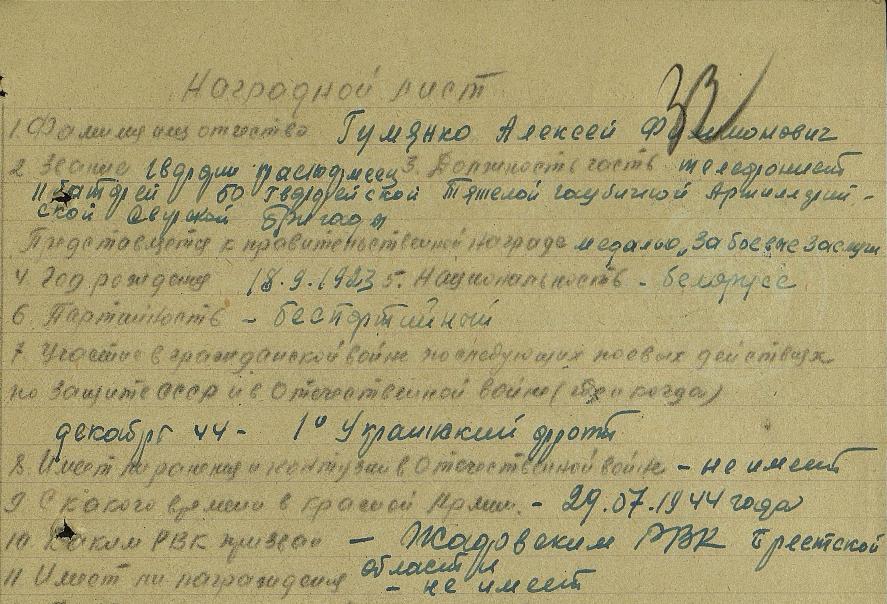 32
Наградной лист
1. Фамилия имя отчество Гумянко Алексей Филимонович
2. Звание гвардии красноармеец 3. Должность часть телефонист
11 батареи 50 Гвардейской Тяжелой гаубичной Артиллерий-
ской бригады
Представляется к правительственной награде медалью „За боевые заслуги
4. Год рождения 18.9.1923 5. Национальность - белорусс
6. Партийность - беспартийный
7. Участие в гражданской войне последующих боевых действиях
по защите СССР и в Отечественной войне (где и когда)
декабрь 44 - 1й Украинский фронт
8. Имеет ли ранения и контузии в Отечественной войне - не имеет
9. С какого времени в Красной Армии. - 29.07.1944 года
10. Каким РВК призван - РВК Брестской
области
11. Имеет ли награждения - не имеет